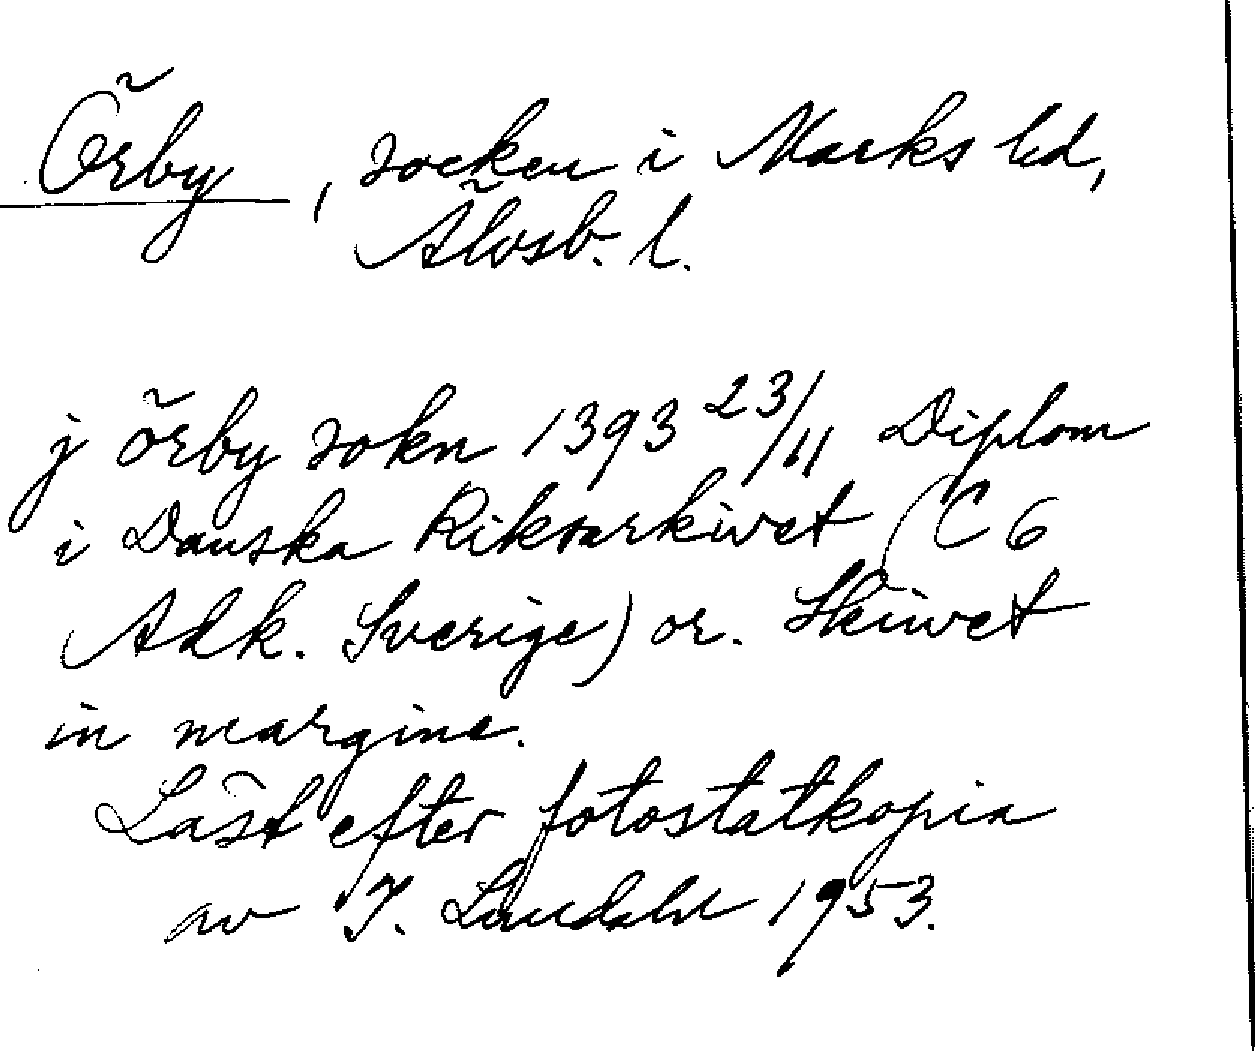 Örby, socken i Marks hd,
Älvsb. l.
j örby sokn 1393 23/11 Diplom
i Danska Riksarkivet (C 6
Adk. Sverige) or. Skiwet
in margine.
Läst efter fotostatkopia
av I. Lundahl 1953.